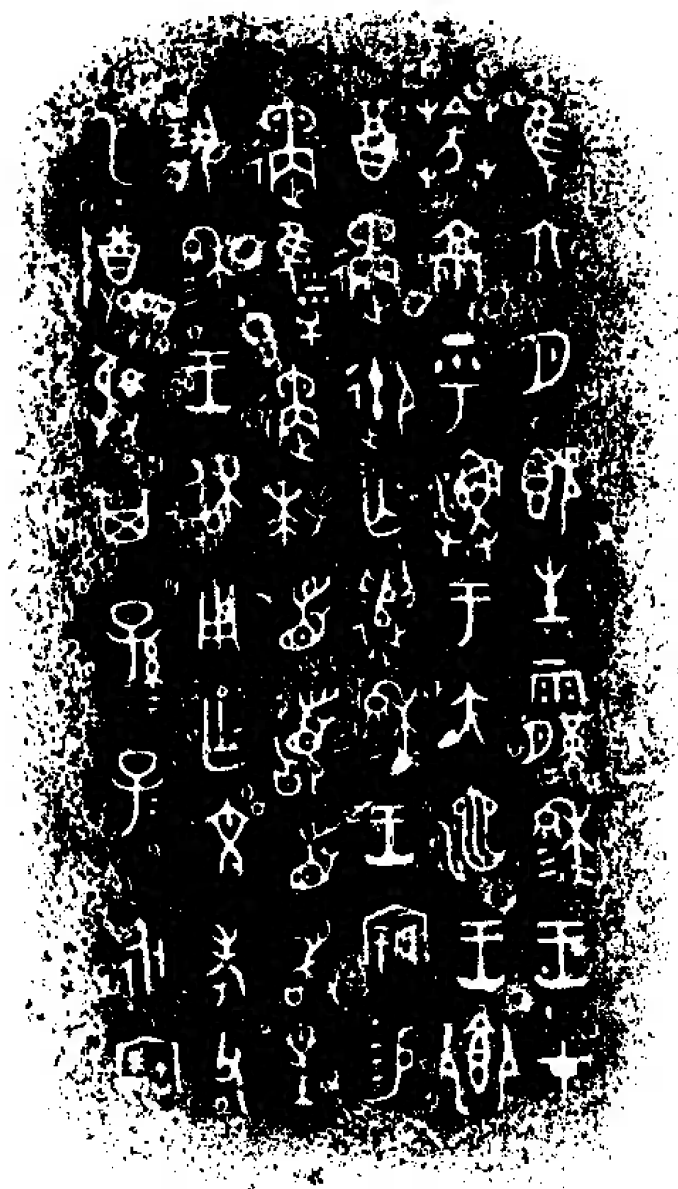 隹六月既生霸穆=王才
𦯉京乎漁于大池王鄉
酉遹御亡遣穆=王親易
遹𩿨遹拜首𩒨首敢對
揚穆=王休用乍文考父
乙尊彝其孫=子=永寶